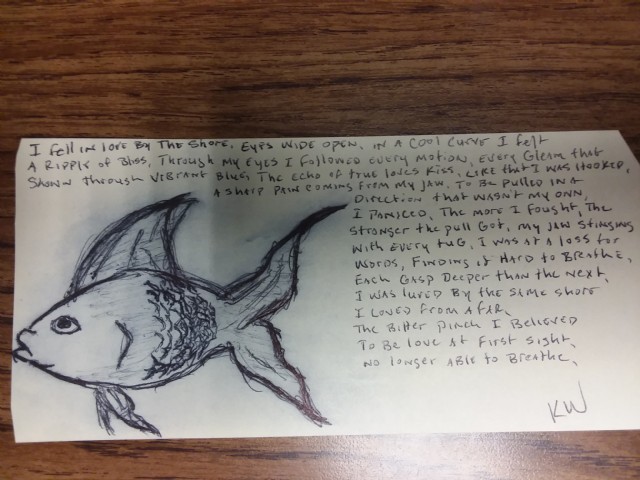 I fell in love By The Shore. Eyes wide open, in a cool curve I felt
A Ripple of Bliss, Through my eyes I followed every motion, Every Gleam that
Shown through vibrant Blues The echo of true loves kiss, Like that I was Hooked,
A sharp pain coming from my jaw, To Be pulled in A
Direction that wasn't my own,
I panicked, The more I fought, The
Stronger the pull Got, my Jaw stinging
With every tug, I was at a loss for
Words, Finding it Hard to Breathe,
Each Gasp Deeper than the next,
I was lured By the same shore
I loved from Afar,
The Bitter pinch I Believed
To Be love At First sight,
No longer Able to Breathe,
KW